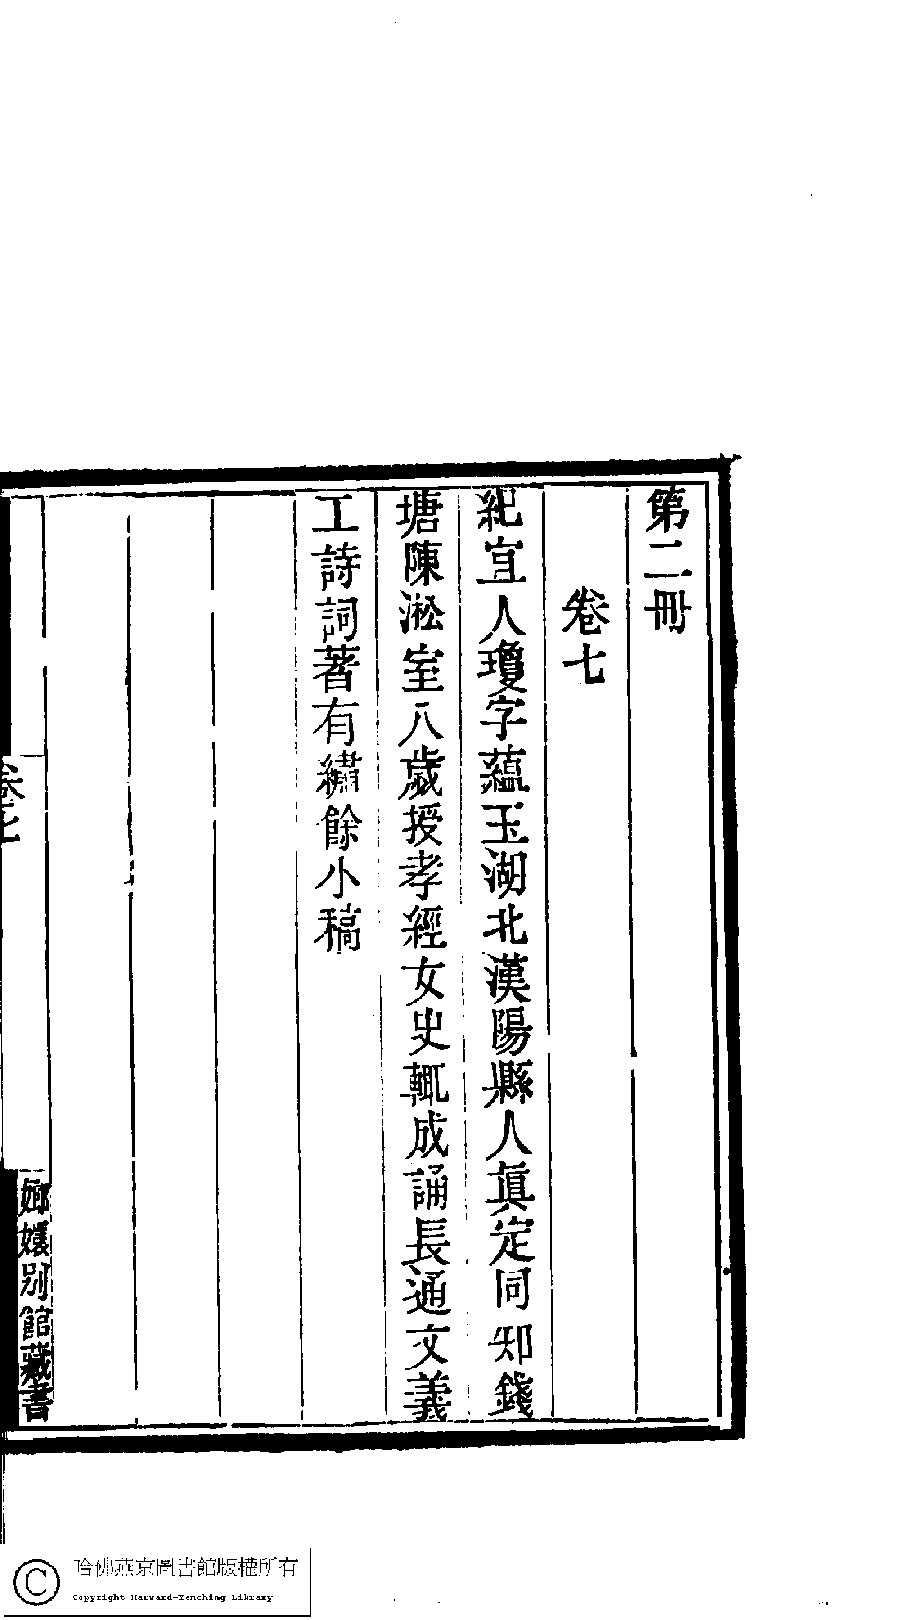 第二冊
卷七
紀宜人瓊字蘊玉湖北漢陽縣人眞定同知錢
塘陳淞室八歲授孝經女史輒成誦長通文義
工詩詞著有繡餘小稿
卷七
嫏嬛別館藏書
哈佛燕京圖書館版權所有
Copyright Harvard-Yenching Library